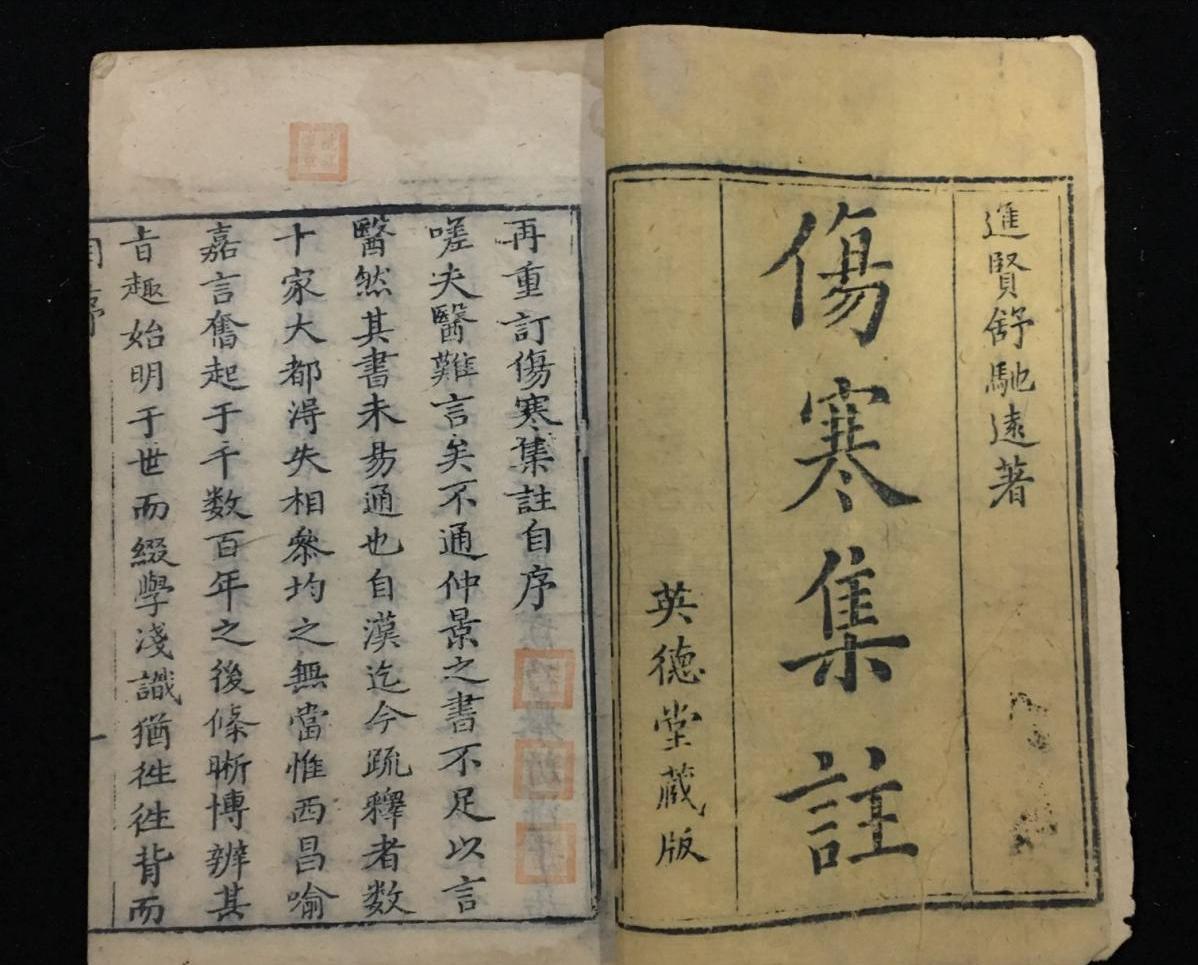 進賢舒馳遠著
傷寒集註
英德堂藏版
再重訂傷寒集註自序
嗟夫醫難言矣不通仲景之書不足以言
醫然其書未易通也自漢迄今疏釋者数
十家大都淂失相叅均之無當惟西昌喻
嘉言奮起于千数百年之後條晰博辨其
㫖趣始明于世而綴學淺識猶徃徃背而